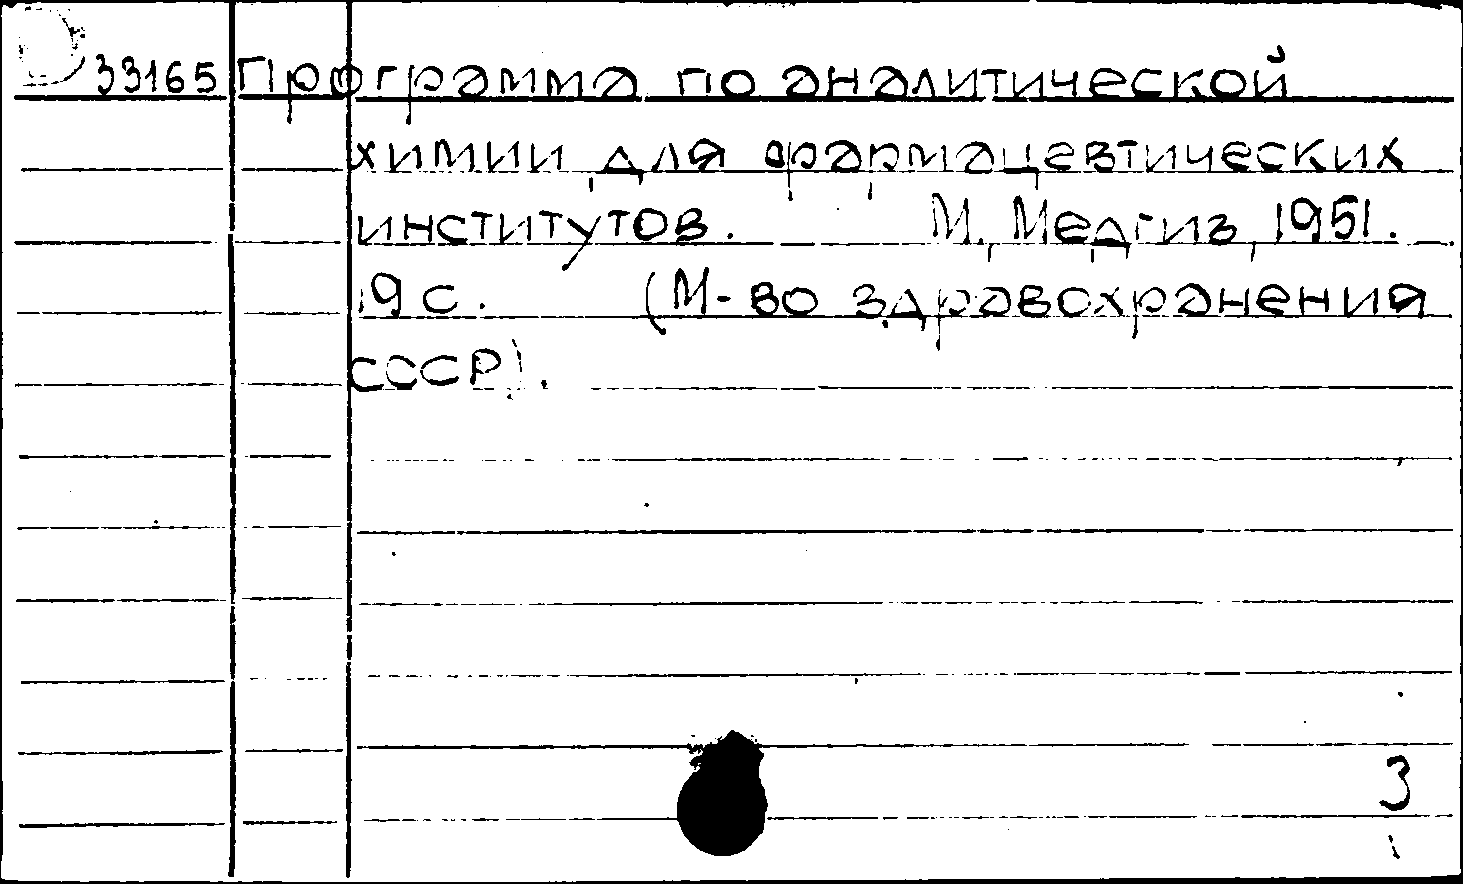 33165 Программа по аналитической
химии для фармацевтических
институтов. М., Медгиз, 1951.
19 с. (М-во здравохранения
СССР).
3